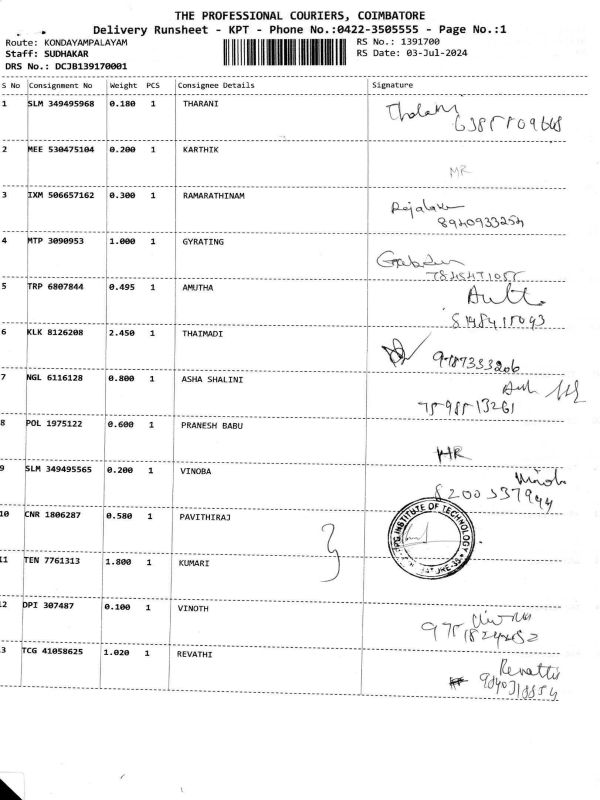 THE PROFESSIONAL COURIERS, COIMBATORE
Delivery Runsheet - KPT - Phone No.:0422-3505555 - Page No.:1
Route: KONDAYAMPALAYAM RS No.: 1391700
Staff: SUDHAKAR RS Date: 03-Jul-2024
DRS No.: DCJB139170001
S No Consignment No Weight PCS Consignee Details Signature
1 SLM 349495968 0.180 1 THARANI
2 MEE 530475104 0.200 1 KARTHIK MR
3 IXM 506657162 0.300 1 RAMARATHINAM
8940933254
4 MTP 3090953 1.000 1 GYRATING
5 TRP 6807844 0.495 1 AMUTHA
6 KLK 8126208 2.450 1 THAIMADI
7 NGL 6116128 0.800 1 ASHA SHALINI
8 POL 1975122 0.600 1 PRANESH BABU
9 SLM 349495565 0.200 1 VINOBA
10 CNR 1806287 0.580 1 PAVITHIRAJ
INSTITUTE OF TECHNOLOGY
11 TEN 7761313 1.800 1 KUMARI
2 DPI 307487 0.100 1 VINOTH
3 TCG 41058625 1.020 1 REVATHI